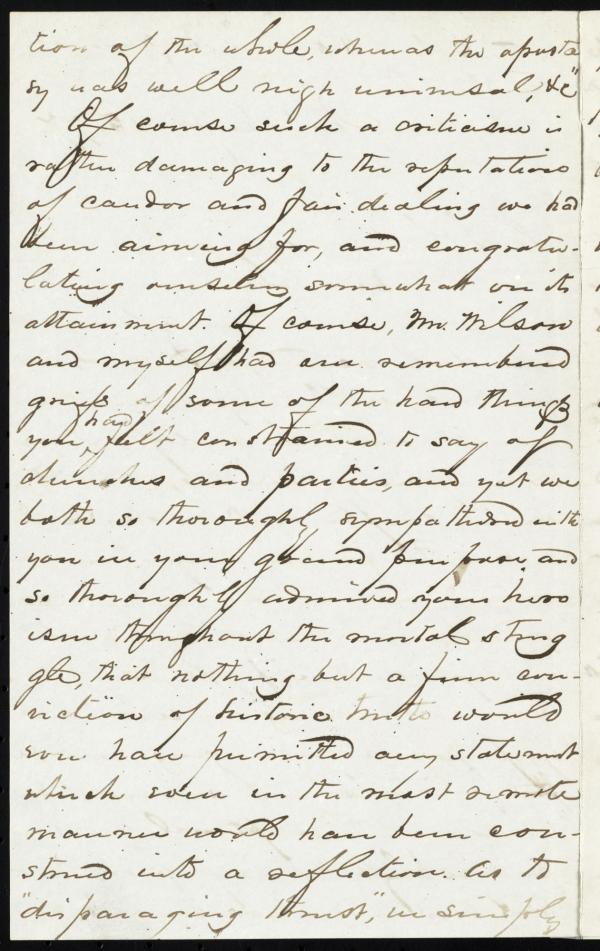 tion of the whole, whereas the aposta
sy was well nigh universal, &c"
Of course such a criticism is
rather damaging to the reputation
of candor and fair dealing we had
been aiming for, and congratu-
lating ourselves somewhat on its
attainment. Of course, Mr. Wilson
and myself had and remembered
griefs of some of the hard things
you had felt constrained to say of
churches and parties, and yet we
both so thoroughly sympathized with
you in your grand purpose, and
so thoroughly admired your hero
ism throughout the mortal strug
gle, that nothing but a firm con-
viction of historic truth would
ever have permitted any statement
which even in the most remote
manner would have been con-
strued into a reflection. As to
"disparaging thrust", in simply